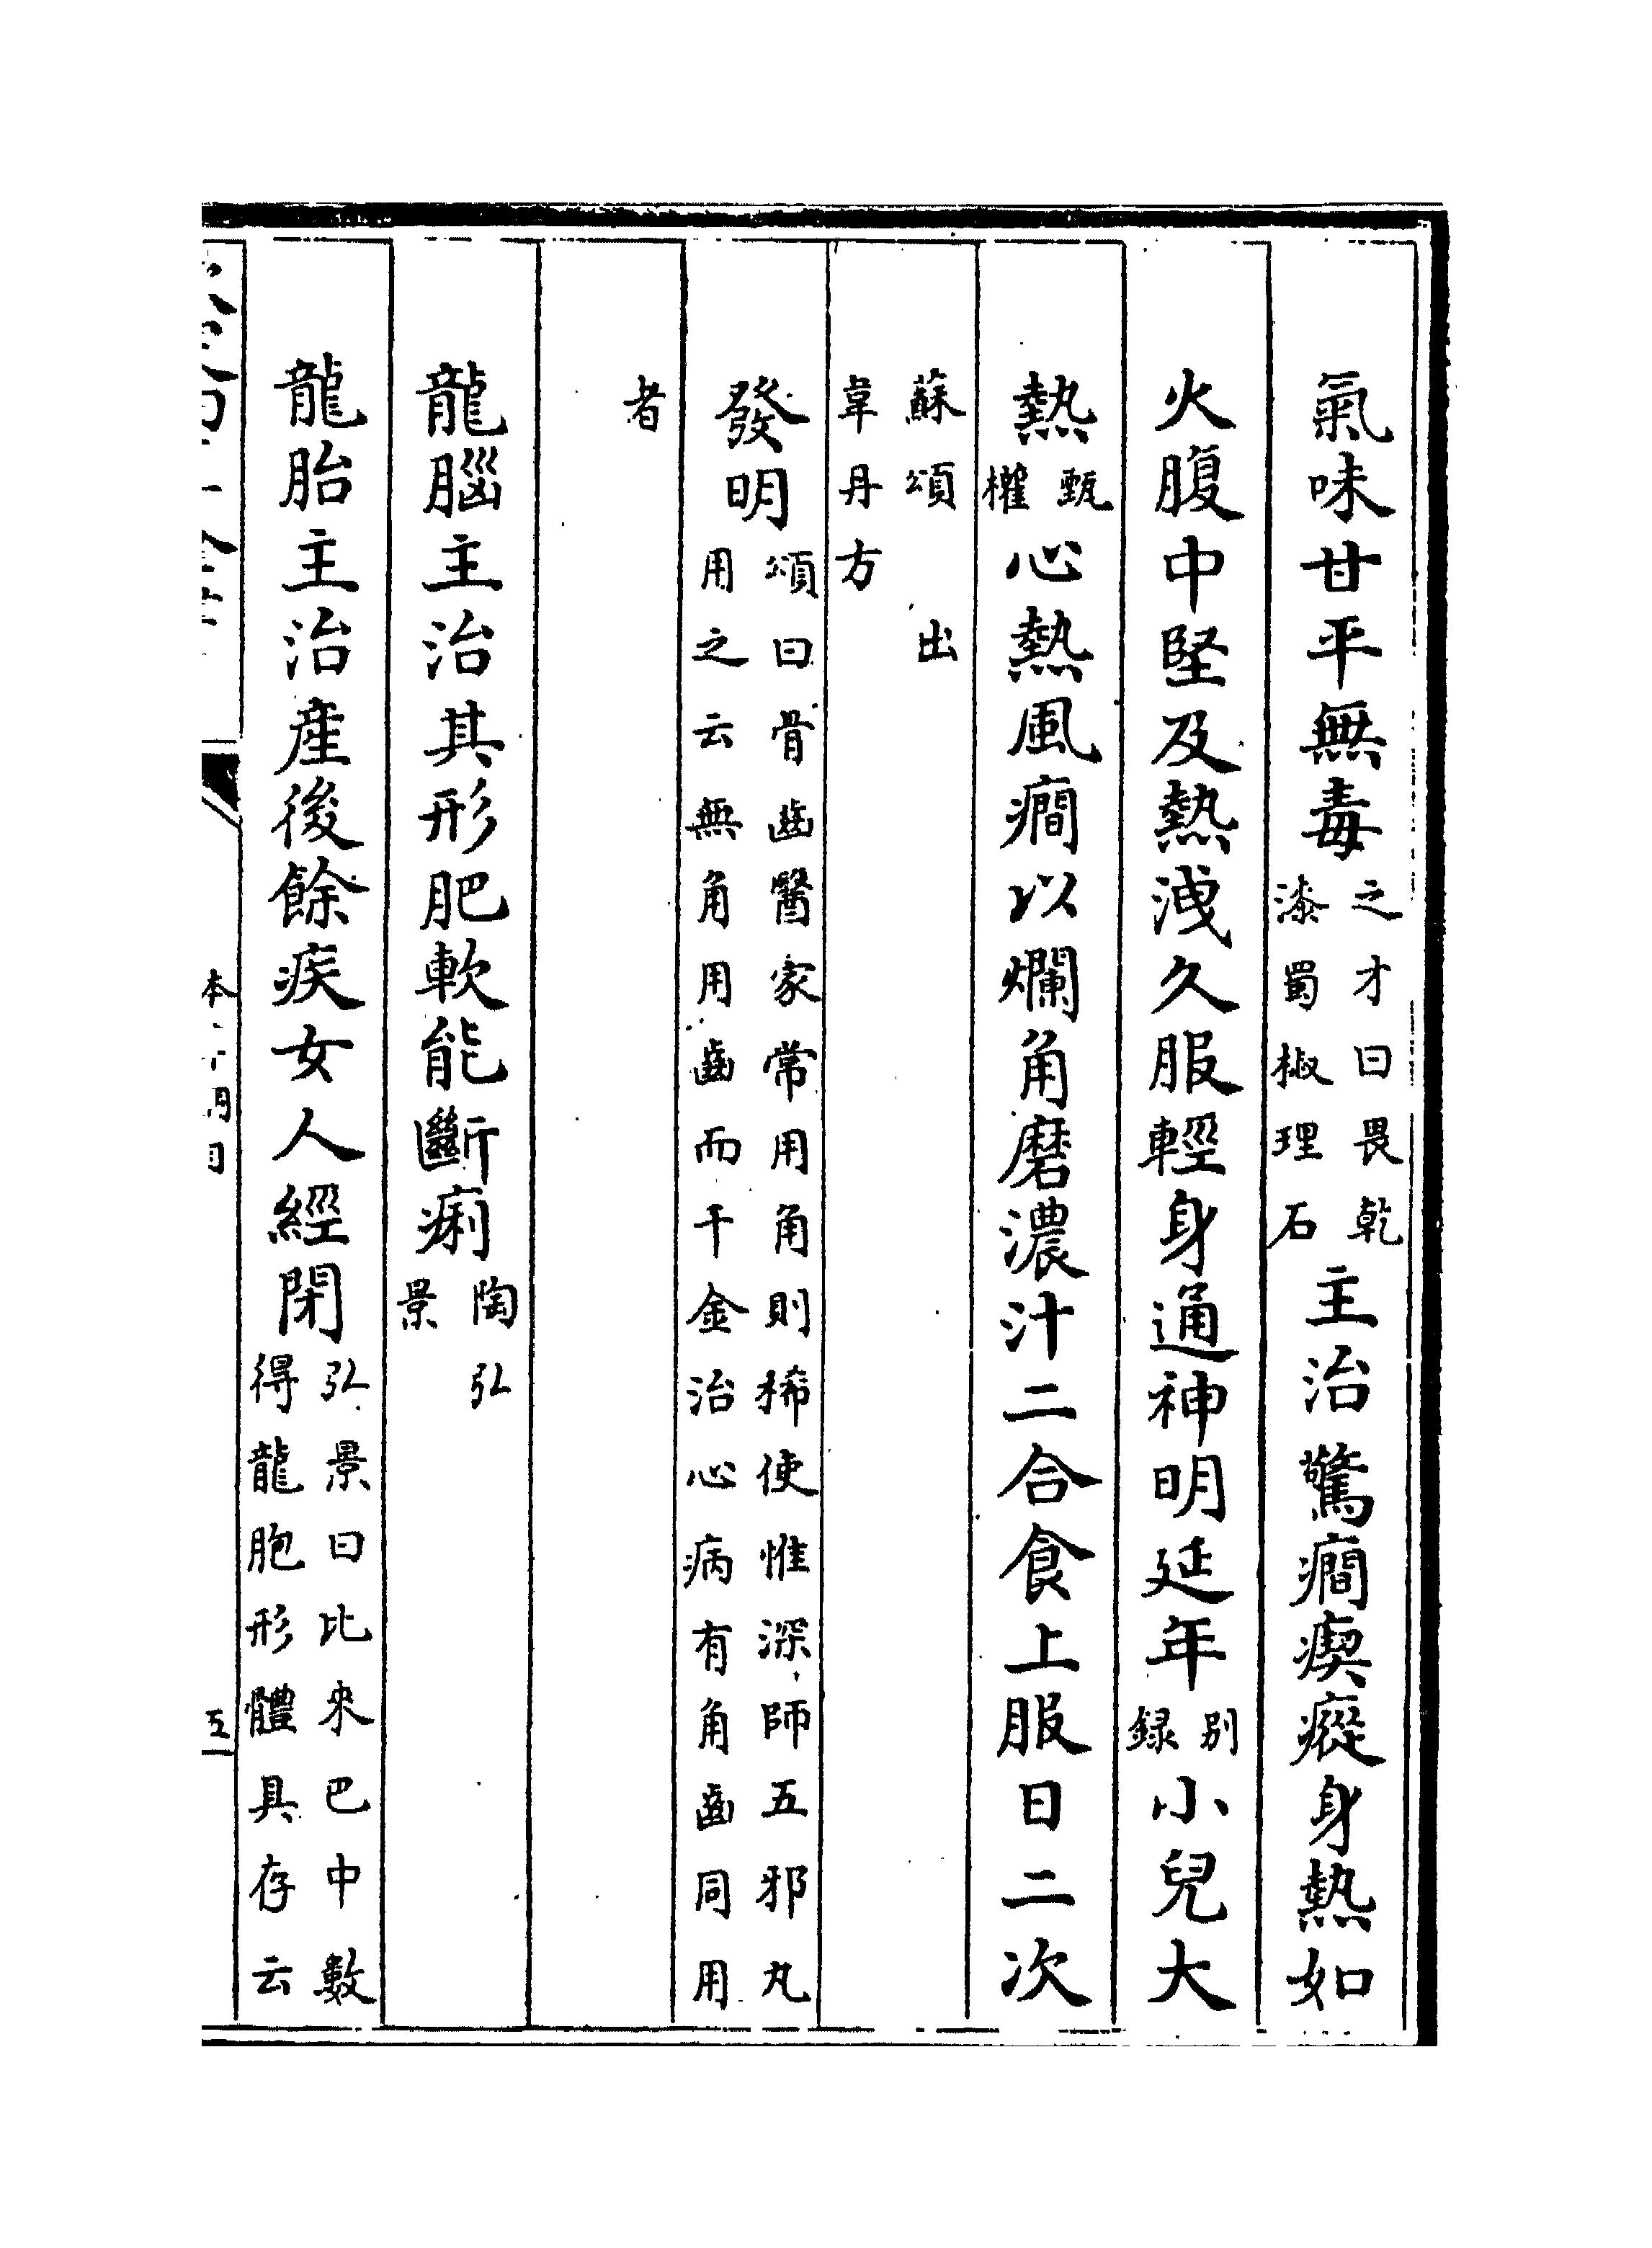 氣味甘平無毒之才曰畏乾漆蜀椒理石主治驚癇瘈瘲身熱如
火腹中堅及熱洩久服輕身通神明延年别録小兒大
熱甄權心熱風癇以爛角磨濃汁二合食上服日二次
蘇頌出韋丹方
發明頌曰骨齒醫家常用角則稀使惟深師五邪丸用之云無角用齒而千金治心病有角齒同用
者
龍腦主治其形肥軟能斷痢陶弘景
龍胎主治産後餘疾女人經閉弘景曰比來巴中數得龍胞形體具存云
本草綱目
五